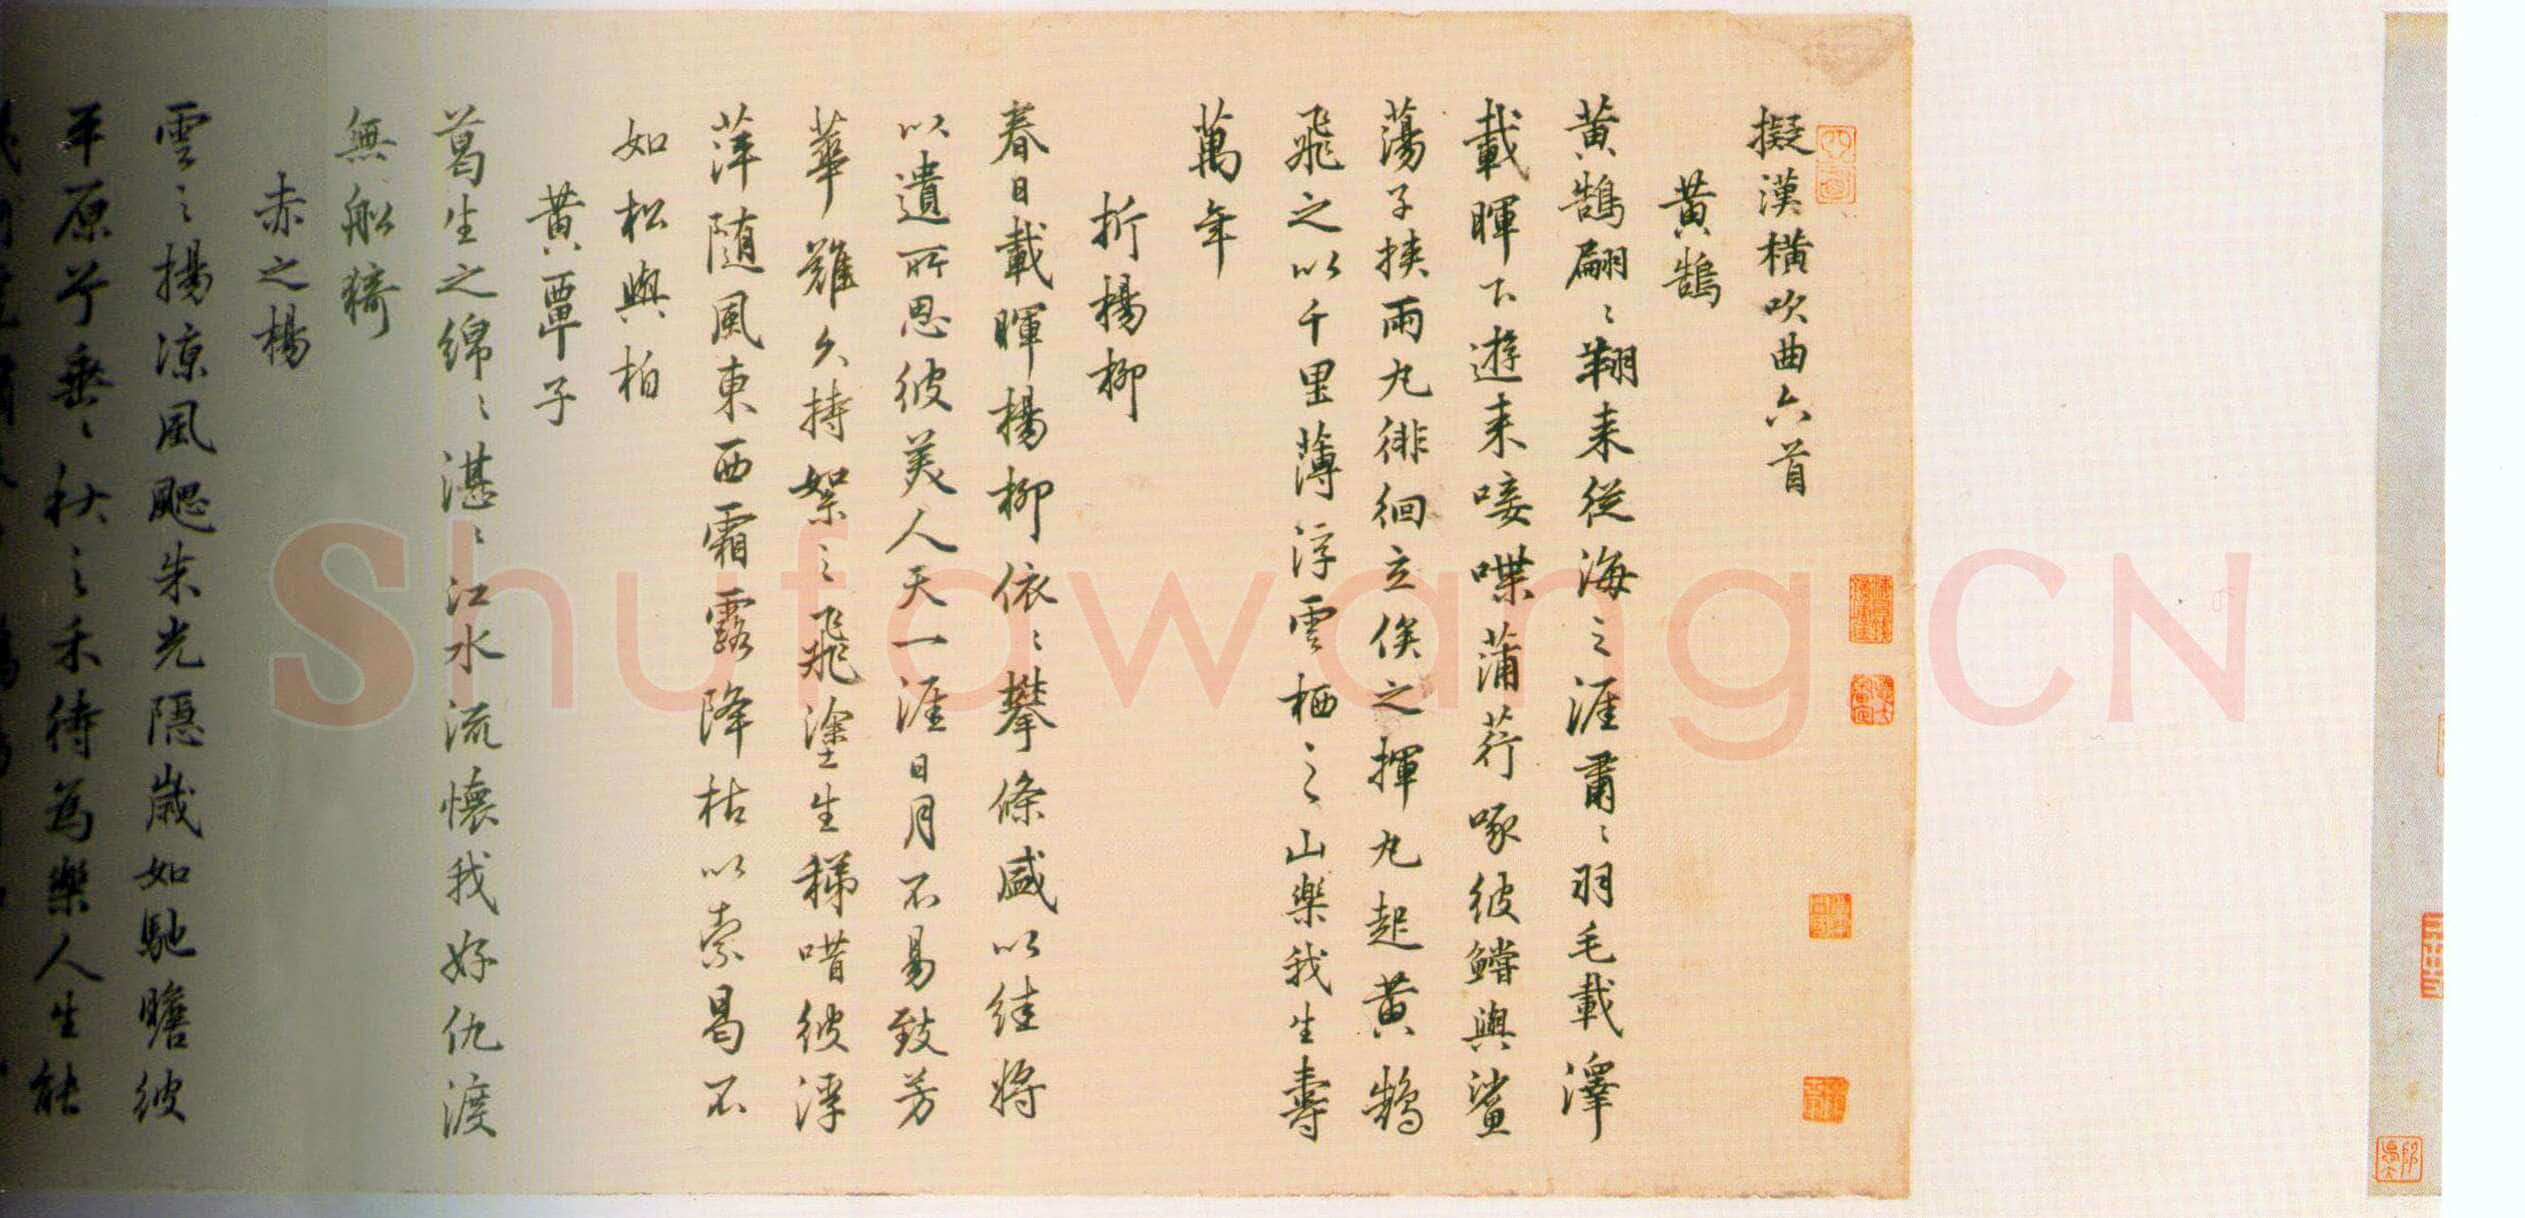 擬漢橫吹曲六首
黃鵠
黃鵠翩〻翔来從海之涯肅〻羽毛載澤
載暉下遊来唼喋蒲荇啄彼鱨與鯊
蕩子挾兩丸徘徊立俟之揮丸起黃鵠
飛之以千里薄浮雲栖之山樂我生壽
萬年
折楊柳
春日載暉楊柳依〻攀條感以結將
以遺所思彼美人天一涯日月不易致芳
華難久持絮之飛塗生稊唶彼浮
萍隨風東西霜露降枯以索曷不
如松與柏
黃覃子
葛生之綿〻湛〻江水流懷我好仇渡
無船猗
赤之楊
雲之揚涼風颸朱光隱歲如馳瞻彼
平原兮垂〻秋之禾待為樂人生能
Shufawang CN